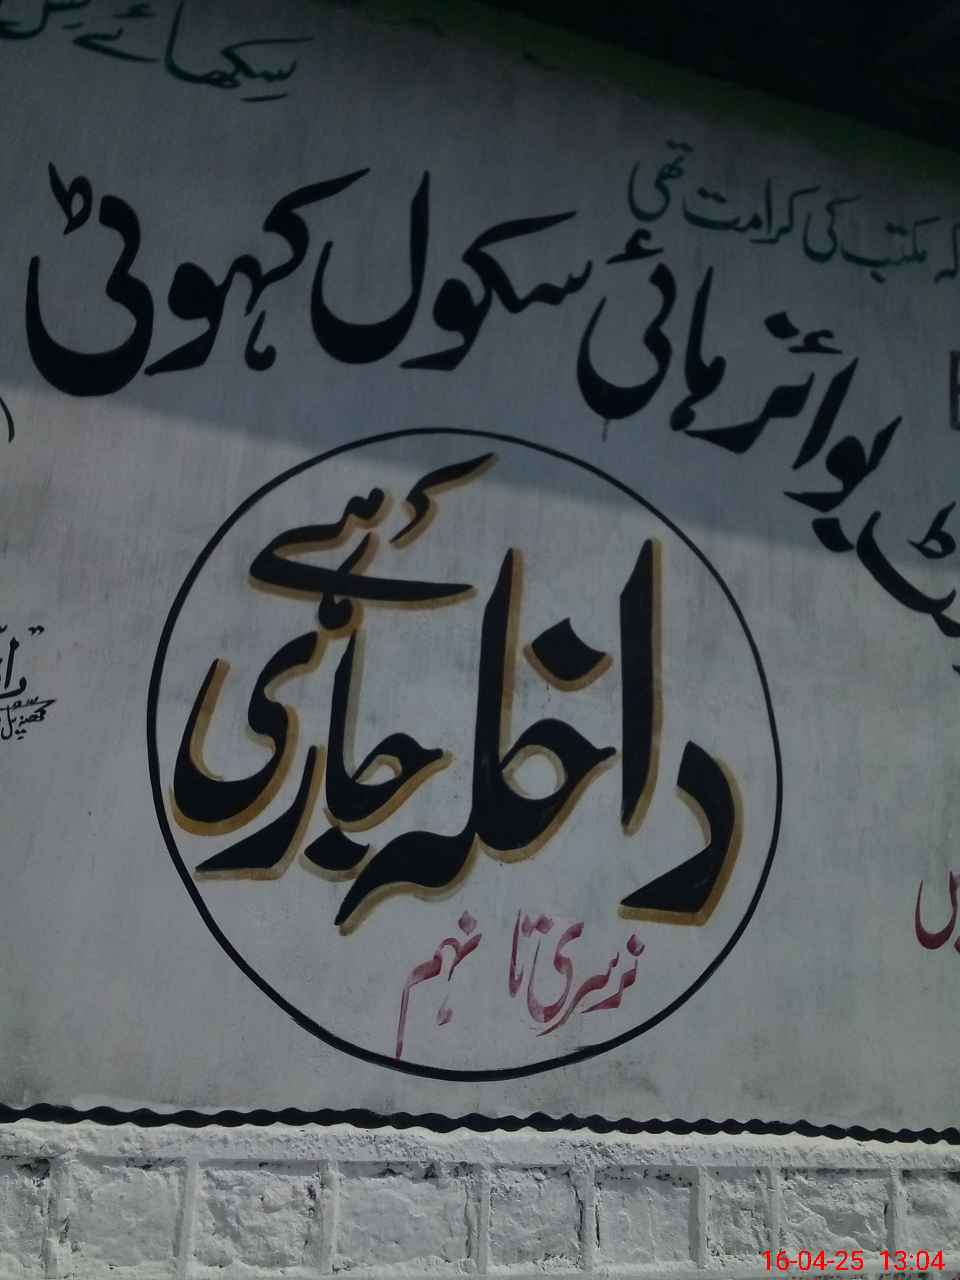 سکھائے کس
کہ مکتب کی کرامت تھی
بوائز ہائی سکول کہوٹی
داخلہ جاری ہے
نرسری تا نہم
16-04-25 13:04